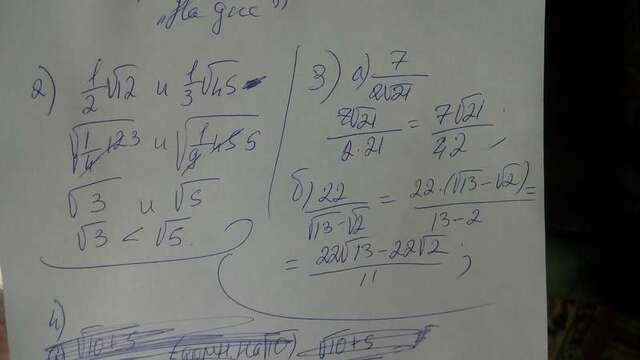 „На дне"
2) 1/2 √12 и 1/3 √45
√(1/4 · 12) 3 и √(1/9 · 45) 5
√3 и √5
√3 < √5
3) а) 7/(2√21)
7√21/(2·21) = 7√21/42 ;
б) 22/(√13-√2) = 22·(√13-√2)/(13-2) =
= (22√13-22√2)/11 ;
4)
√10+5
√10+5